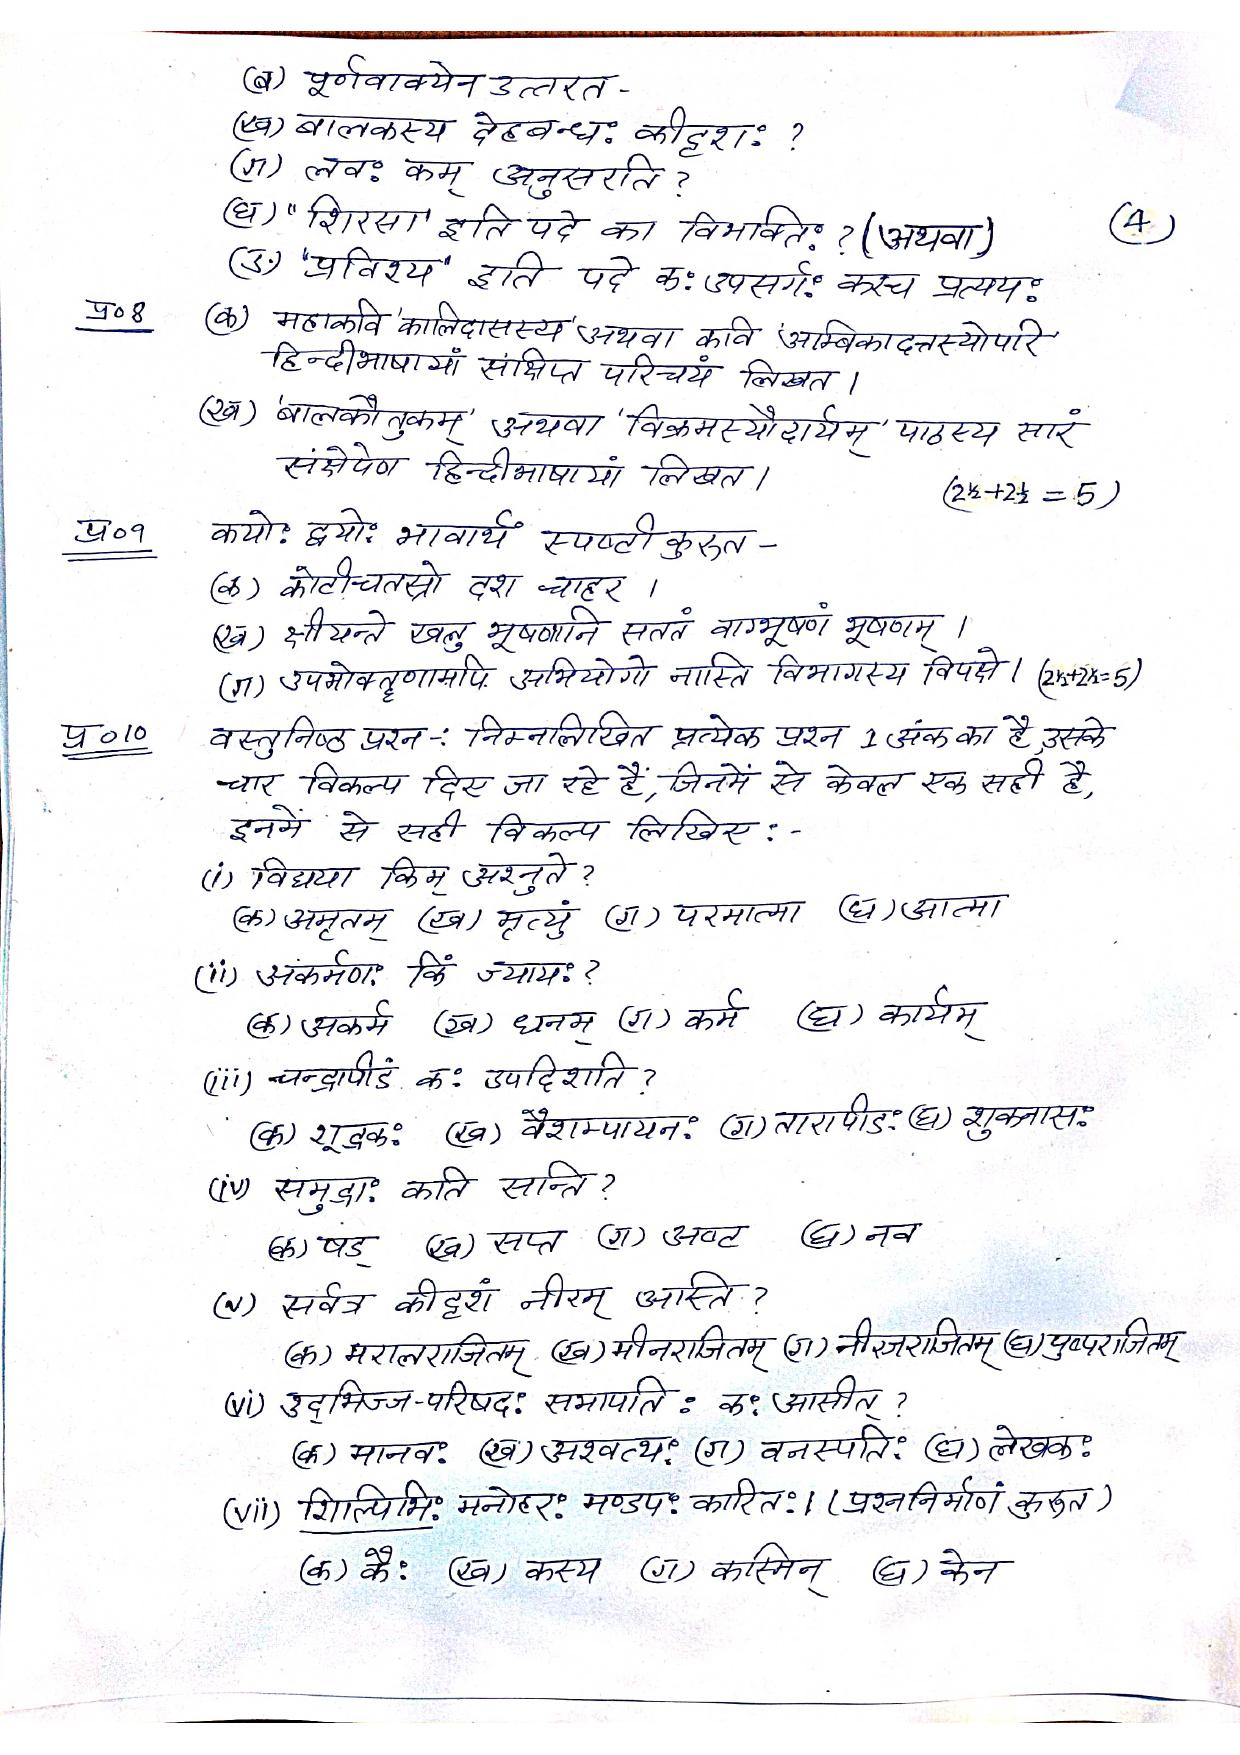 (ब) पूर्णवाक्येन उत्तरत -
(ख) बालकस्य देहबन्धः कीदृशः ?
(ग) लवः कम् अनुसरति ?
(घ) "शिरसा' इति पदे का विभक्तिः ? (अथवा) (4)
(ङ) "प्रविश्य" इति पदे कः उपसर्गः कश्च प्रत्ययः
प्र०8 (क) महाकवि 'कालिदासस्य' अथवा कवि 'अम्बिकादत्तस्योपरि'
हिन्दीभाषायां संक्षिप्त परिचयं लिखत ।
(ख) 'बालकौतुकम्' अथवा 'विक्रमस्यौदार्यम्' पाठस्य सारं
संक्षेपेण हिन्दीभाषायां लिखत ।
(2½+2½ = 5)
प्र०9 कयोः द्वयोः भावार्थं स्पष्टीकुरुत -
(क) कोटीचतस्रो दश चाहर ।
(ख) क्षीयन्ते खलु भूषणानि सततं वाग्भूषणं भूषणम् ।
(ग) उपभोक्तृणामपि अभियोगो नास्ति विभागस्य विपक्षे । (2½+2½=5)
प्र०10 वस्तुनिष्ठ प्रश्न -: निम्नलिखित प्रत्येक प्रश्न 1 अंक का है, उसके
चार विकल्प दिए जा रहे हैं, जिनमें से केवल एक सही है,
इनमें से सही विकल्प लिखिए : -
(i) विद्यया किम् अश्नुते ?
(क) अमृतम् (ख) मृत्युं (ग) परमात्मा (घ) आत्मा
(ii) अकर्मणः किं ज्यायः ?
(क) अकर्म (ख) धनम् (ग) कर्म (घ) कार्यम्
(iii) चन्द्रापीडं कः उपदिशति ?
(क) शूद्रकः (ख) वैशम्पायनः (ग) तारापीडः (घ) शुकनासः
(iv) समुद्राः कति सन्ति ?
(क) षड् (ख) सप्त (ग) अष्ट (घ) नव
(v) सर्वत्र कीदृशं नीरम् अस्ति ?
(क) मरालराजितम् (ख) मीनराजितम् (ग) नीरजराजितम् (घ) पुष्पराजितम्
(vi) उद्भिज्ज-परिषदः सभापतिः कः आसीत् ?
(क) मानवः (ख) अश्वत्थः (ग) वनस्पतिः (घ) लेखकः
(vii) शिल्पिभिः मनोहरः मण्डपः कारितः । (प्रश्ननिर्माणं कुरुत)
(क) कैः (ख) कस्य (ग) कस्मिन् (घ) केन